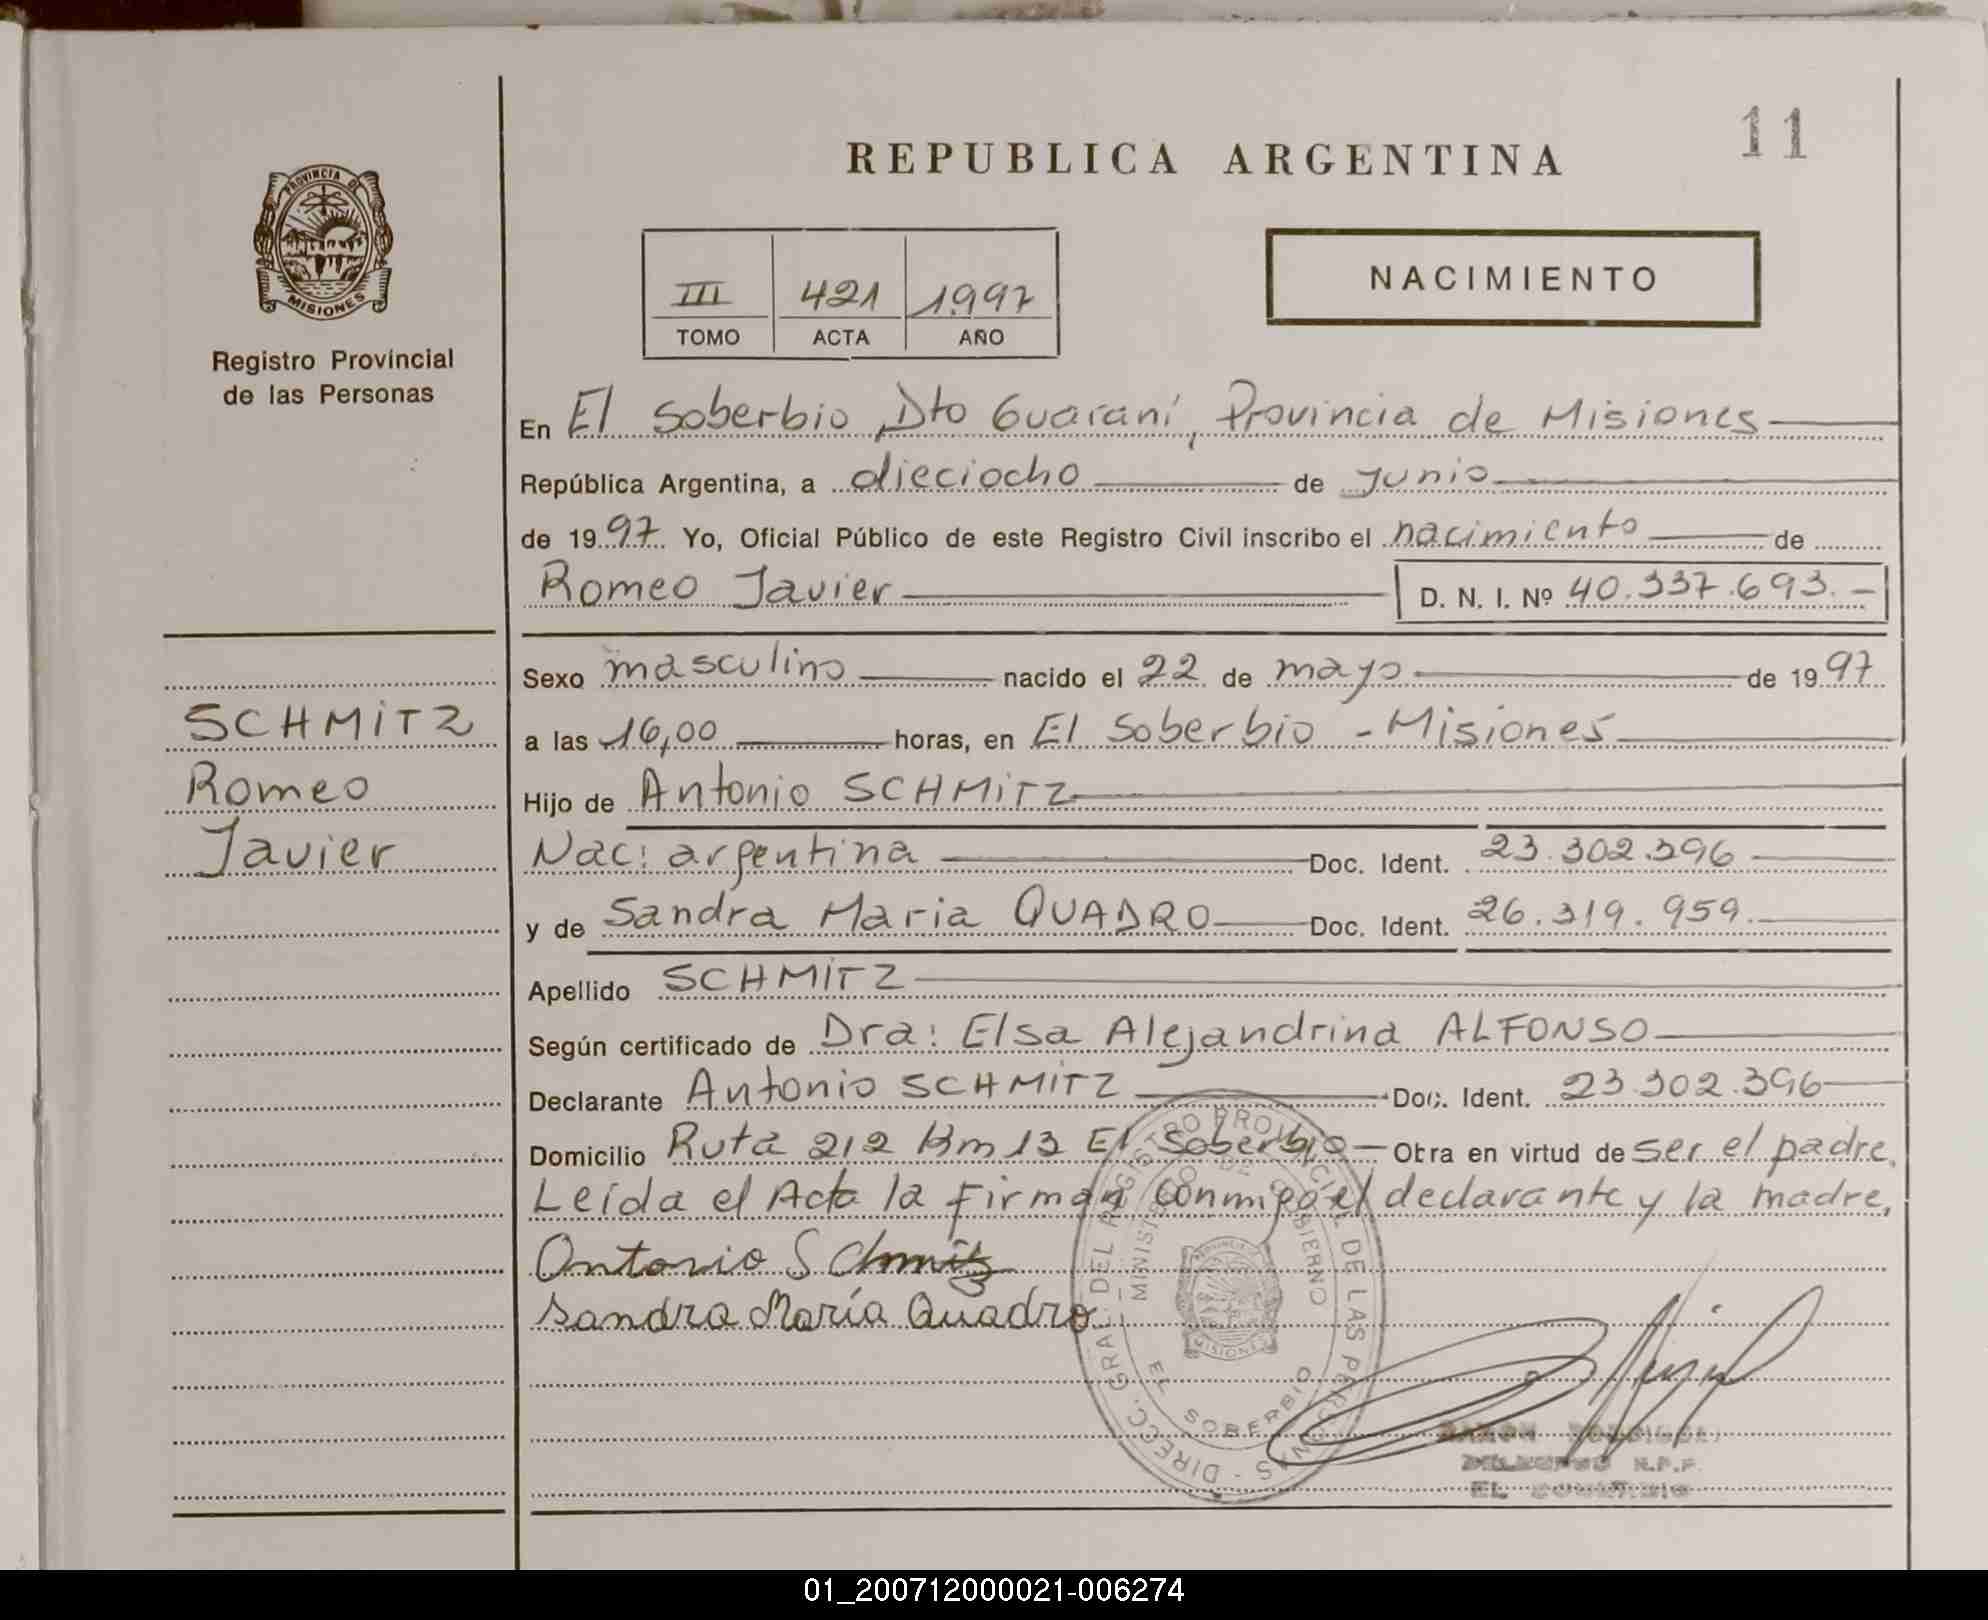 11
REPUBLICA ARGENTINA
PROVINCIA DE
MISIONES
Registro Provincial
de las Personas
III 421 1997
TOMO ACTA AÑO
NACIMIENTO
En El Soberbio, Dto Guaraní, Provincia de Misiones
República Argentina, a dieciocho de Junio
de 1997. Yo, Oficial Público de este Registro Civil inscribo el nacimiento de
Romeo Javier D. N. I. Nº 40.337.693.-
Sexo masculino nacido el 22 de mayo de 1997
a las 16,00 horas, en El Soberbio - Misiones
Hijo de Antonio SCHMiTZ
Nac: argentina Doc. Ident. 23.302.396
y de Sandra Maria QUADRO Doc. Ident. 26.319.959.
Apellido SCHMiTZ
Según certificado de Dra: Elsa Alejandrina ALFONSO
Declarante Antonio SCHMiTZ Doc. Ident. 23.302.396
Domicilio Ruta 212 Km 13 El Soberbio - Otra en virtud de ser el padre.
Leída el Acta la firman conmigo el declarante y la madre.
Antonio SChmitz
Sandra María Quadro
SCHMiTZ
Romeo
Javier
DIRECC. GRAL. DEL REGISTRO PROVINCIAL DE LAS PERSONAS -
MINISTERIO DE GOBIERNO
PROVINCIA DE
MISIONES
EL SOBERBIO
EL SOBERBIO
01_200712000021-006274